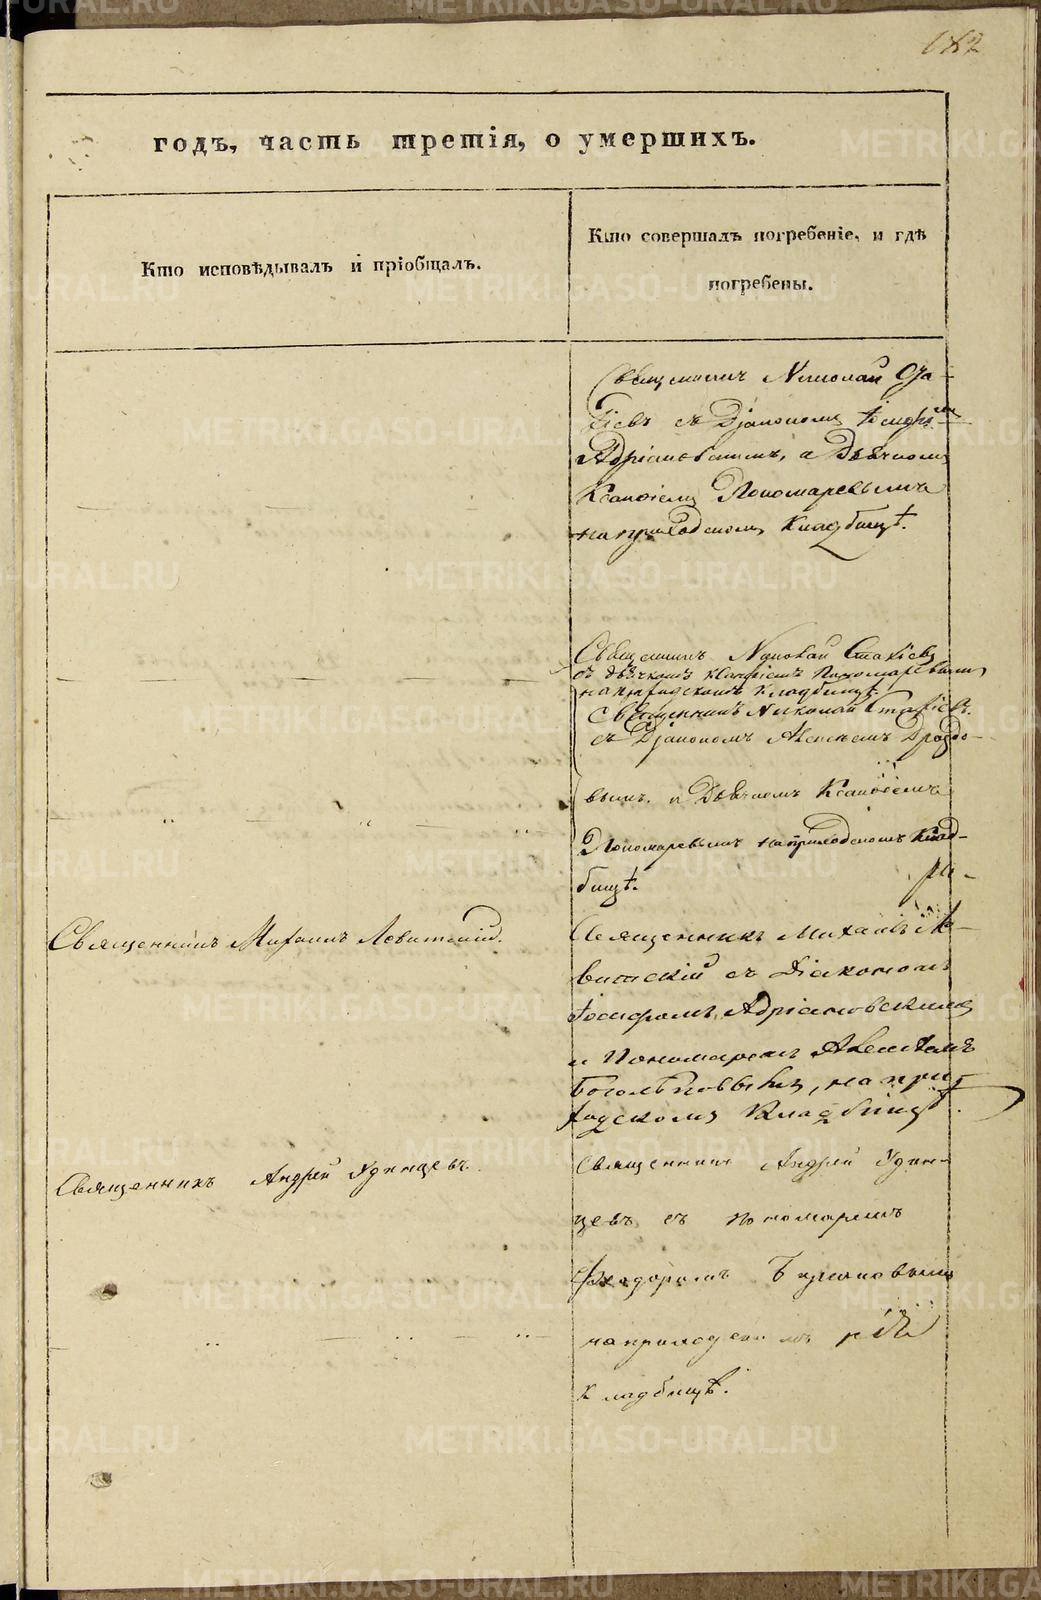 182
годъ, часть третія, о умершихъ.
Кто исповѣдывалъ и пріобщалъ.
Кто совершалъ погребеніе, и гдѣ
погребены.
Священникъ Николай Ста-
фіевъ съ Діакономъ Іосифомъ
Адріановскимъ, и Дьячкомъ
Ксанфіемъ Пономаревымъ
на приходскомъ кладбищѣ.
Священникъ Николай Стафіевъ
съ дьячкомъ Ксанфіемъ Пономаревымъ
на приходскомъ кладбищѣ.
Священникъ Николай Стафіевъ
съ Діакономъ Алексѣемъ Дроздо-
вымъ и Дьячкомъ Ксанфіемъ
Пономаревымъ на приходскомъ клад-
бищѣ.
Священникъ Михаилъ Левитскій.
Священникъ Михаилъ Ле-
витскій съ Діакономъ
Іосифомъ Адріановскимъ
и Пономаремъ Алексѣемъ
Боголѣповымъ, на при-
ходскомъ кладбищѣ.
Священникъ Андрей Удинцевъ
Священникъ Андрей Удин-
цевъ съ пономаремъ
Феодоромъ
на приходскомъ
кладбищѣ.
METRIKI.GASO-URAL.RU